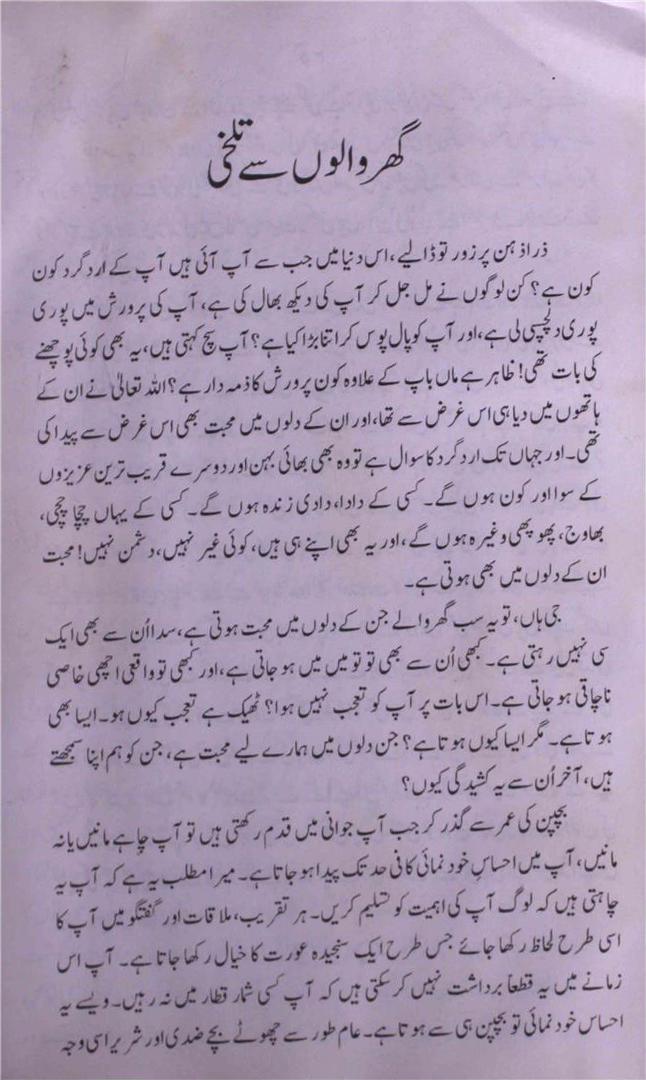 گھر والوں سے تلخی
ذرا ذہن پر زور تو ڈالیے، اس دنیا میں جب سے آپ آئی ہیں آپ کے اُرد گرد کون
کون ہے؟ کن لوگوں نے مل جل کر آپ کی دیکھ بھال کی ہے، آپ کی پرورش میں پوری
پوری دلچسپی لی ہے، اور آپ کو پال پوس کر اتنا بڑا کیا ہے؟ آپ سچ کہتی ہیں، یہ بھی کوئی پوچھنے
کی بات تھی! ظاہر ہے ماں باپ کے علاوہ کون پرورش کا ذمہ دار ہے؟ اللہ تعالیٰ نے ان کے
ہاتھوں میں دیا ہی اس غرض سے تھا، اور ان کے دلوں میں محبت بھی اس غرض سے پیدا کی
تھی۔ اور جہاں تک ارد گرد کا سوال ہے تو وہ بھی بھائی بہن اور دوسرے قریب ترین عزیزوں
کے سوا اور کون ہوں گے۔ کسی کے دادا، دادی زندہ ہوں گے۔ کسی کے یہاں چچا چچی،
بھاوج، پھوپھی وغیرہ ہوں گے، اور یہ بھی اپنے ہی ہیں، کوئی غیر نہیں، دشمن نہیں! محبت
ان کے دلوں میں بھی ہوتی ہے۔
جی ہاں، تو یہ سب گھر والے جن کے دلوں میں محبت ہوتی ہے، سدا اُن سے بھی ایک
سی نہیں رہتی ہے۔ کبھی اُن سے بھی تو تو میں میں ہو جاتی ہے، اور کبھی تو واقعی اچھی خاصی
ناچاتی ہو جاتی ہے۔ اس بات پر آپ کو تعجب نہیں ہوا؟ ٹھیک ہے تعجب کیوں ہو۔ ایسا بھی
ہوتا ہے۔ مگر ایسا کیوں ہوتا ہے؟ جن دلوں میں ہمارے لیے محبت ہے، جن کو ہم اپنا سمجھتے
ہیں، آخر اُن سے یہ کشیدگی کیوں؟
بچپن کی عمر سے گذر کر جب آپ جوانی میں قدم رکھتی ہیں تو آپ چاہے مانیں یا نہ
مانیں، آپ میں احساسِ خود نمائی کافی حد تک پیدا ہو جاتا ہے۔ میرا مطلب یہ ہے کہ آپ یہ
چاہتی ہیں کہ لوگ آپ کی اہمیت کو تسلیم کریں۔ ہر تقریب، ملاقات اور گفتگو میں آپ کا
اسی طرح لحاظ رکھا جائے جس طرح ایک سنجیدہ عورت کا خیال رکھا جاتا ہے۔ آپ اس
زمانے میں یہ قطعاً برداشت نہیں کر سکتی ہیں کہ آپ کسی شمار قطار میں نہ رہیں۔ ویسے یہ
احساس خود نمائی تو بچپن ہی سے ہوتا ہے۔ عام طور سے چھوٹے بچے ضدی اور شریر اسی وجہ